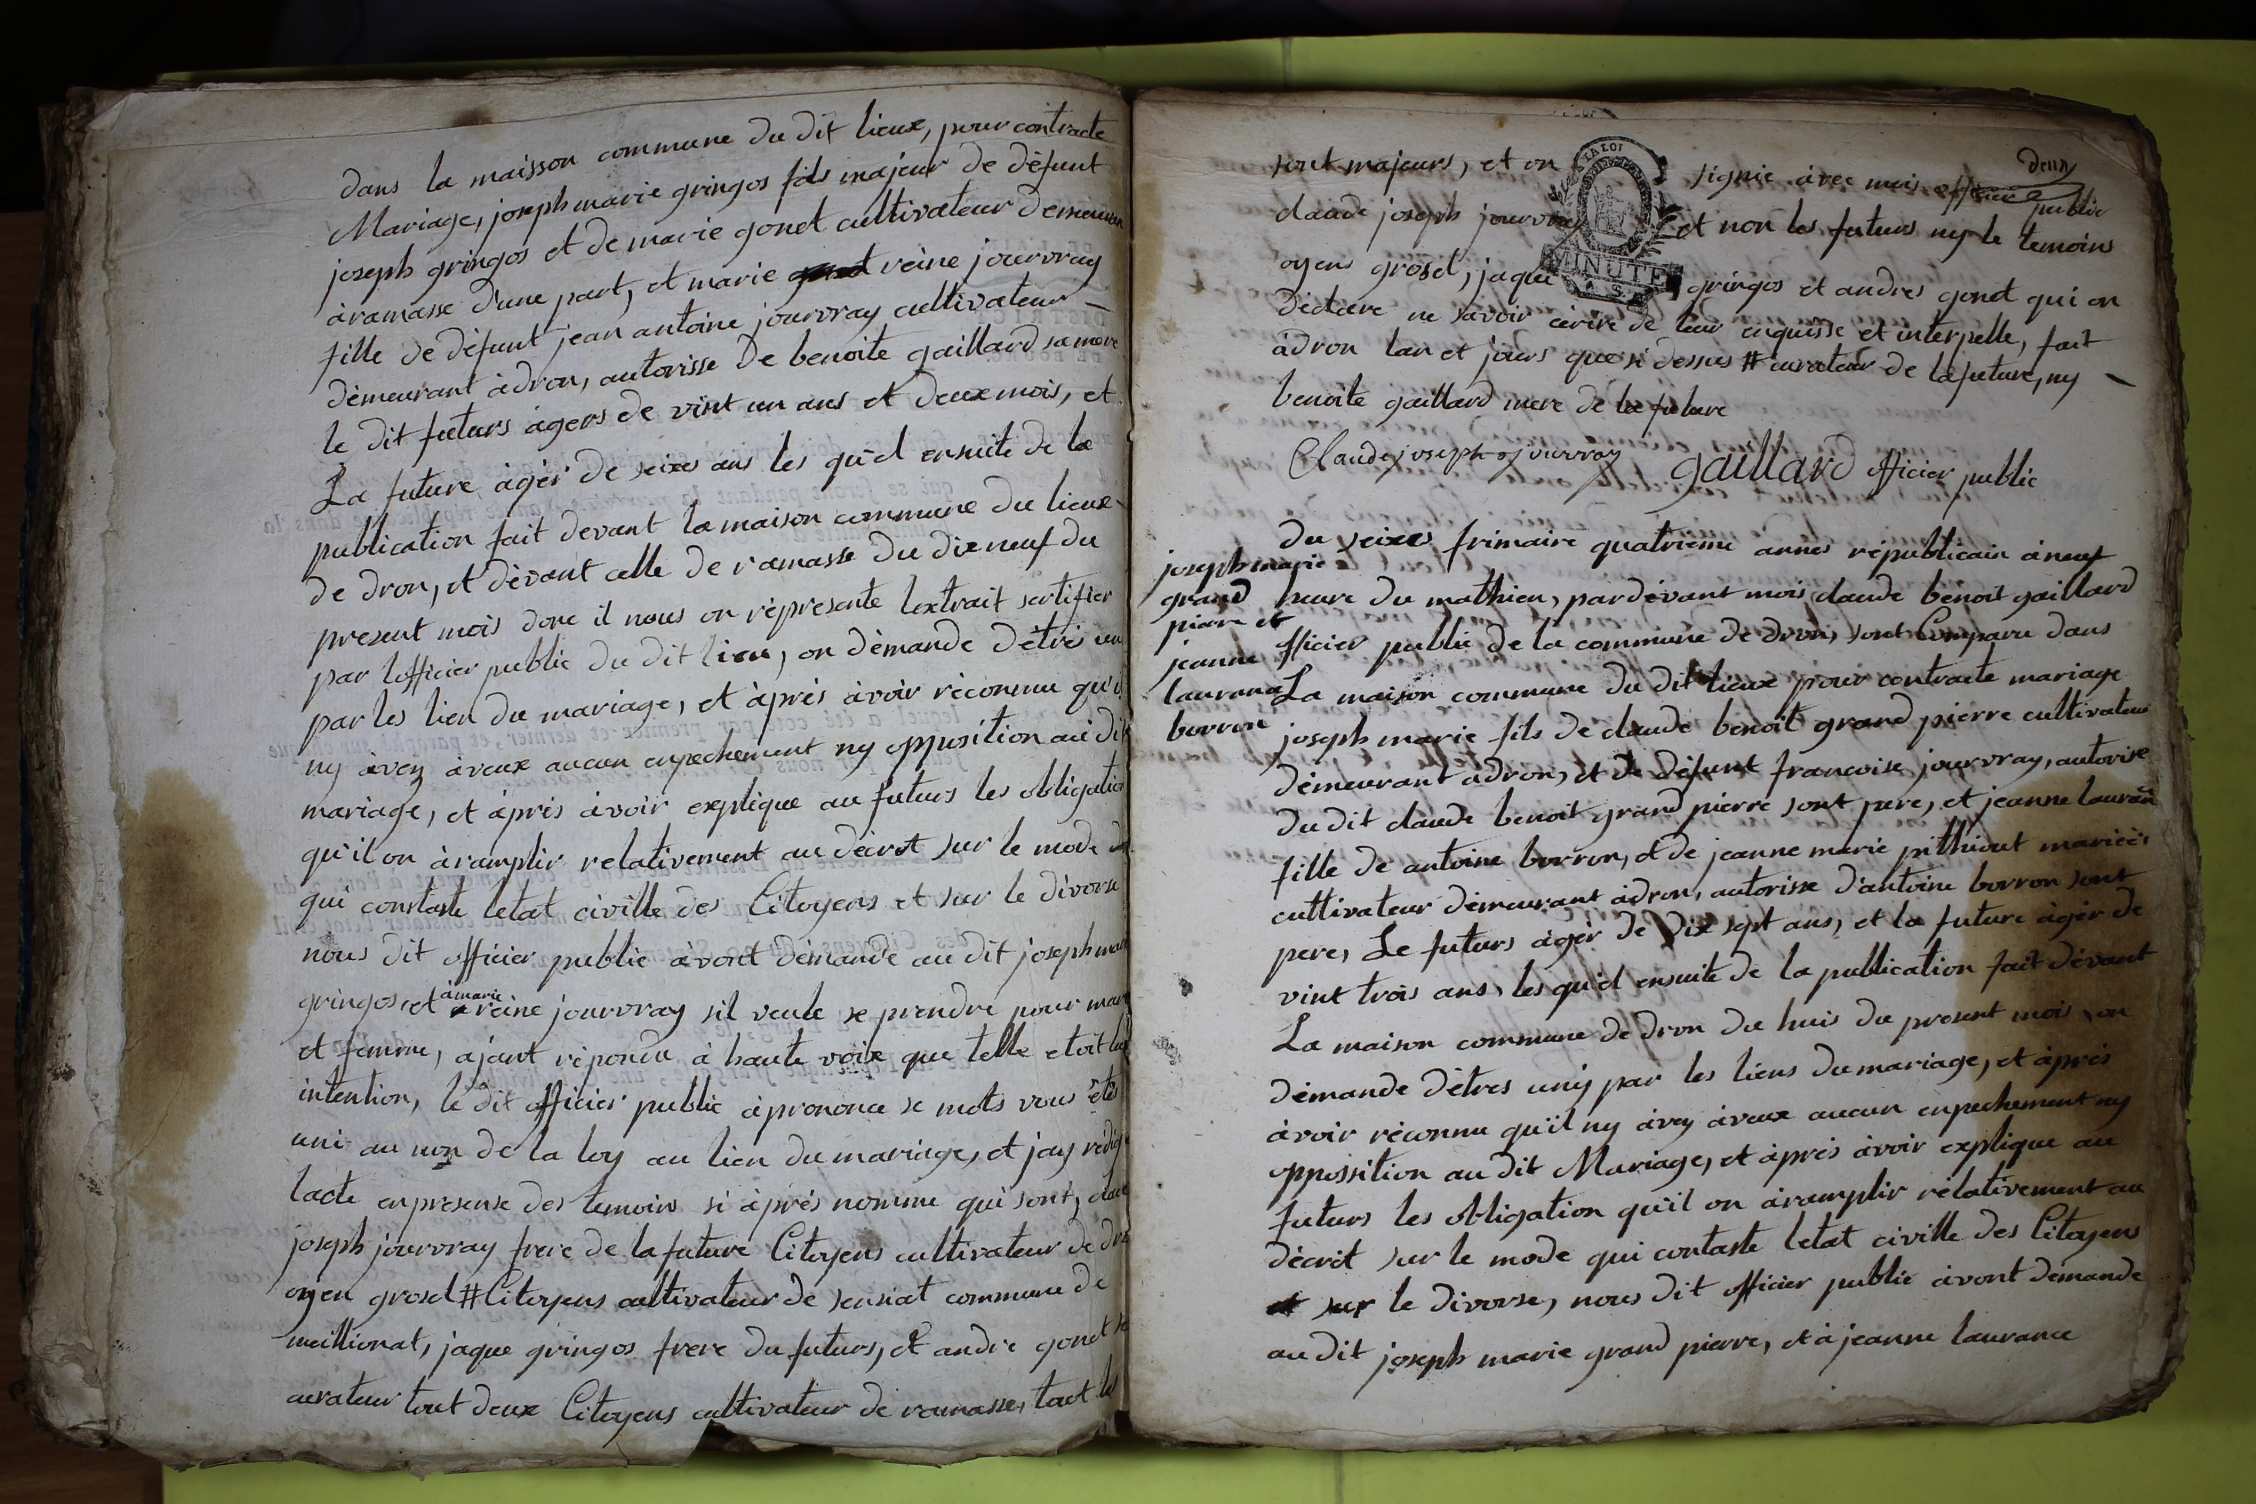 dans la maisson commune du dit lieux, pour contracte
Mariage, joseph marie gringos fils majeur de défunt
joseph gringos et de marie gonet cultivateur demeuran
àramasse d'une part, et marie reine jourvray
fille de défunt jean antoine jourvray cultivateur
démeurant àdron, autorisse de benoite gaillard sa mere
le dit futurs àgers de vint un ans et deux mois, et
La future àgér de seixes ans les qu'el ensuite de la
publication fait devant la maison commune du lieux
de dron, et dévant celle de ramasse du dix neuf du
present mois donc il nous on réprésente lextrait sertifier
par lofficier public du dit lieu, on démande d'etrés un
par les lien du mariage, et àprés àvoir réconnu qu'il
ny àvey àveux aucun enpechement ny opposition au dit
mariage, et àprés àvoir explique au futurs les obligation
qu'il on àramplir relativement au décret sur le mode
qui constaste letat civille des Citoyens et sur le divorse
nous dit officier public àvont démande au dit joseph mar
gringos, et àmarie reine jourvray sil veule se prendre pour mar
et femme, ajant répondu à haute voix que telle etoit leu
intention, le dit officier public àprononce se mots vous étes
uni au non de la loy au lien du mariage, et jay rédig
lacte enpresense des temoins si àprés nomme qui sont, clau
joseph jourvray frere de la future Citoyens cultivateur de dro
oyen grosel # Citoyens cultivateur de sensiat commune de
meillionat, jaque gringos frere du futurs, et andre gonet
curateur tout deux Citoyens cultivateur de ramasse, tout les
deux
sont majeurs, et on signie àvec mois officie public
claude joseph jourvray et non les futurs ny le temoins
oyens grosel, jaque gringos et andres gonet qui on
déclare ne savoir écrire de leur enquisse et interpelle, fait
àdron lan et jours que si dessus # curateur de lafuture, ny
benoite gaillard mere de la future
Claude joseph jourvray gaillard officier public
LA LOI
MINUTE
joseph marie
grand
pierre et
jeanne
laurance
borron
du seixes frimaire quatrieme annes républicain àneuf
heure du mathien, pardévant mois claude benoit gaillard
officier public de la commune de dron, sont Comparu dans
La maison commune du dit lieux pour contracte mariage
joseph marie fils de claude benoit grand pierre cultivateur
démeurant adron, et de défunt francoise jourvray, autorise
du dit claude benoit grand pierre sont pere, et jeanne lauran
fille de antoine borron, et de jeanne marie pithiout mariées
cultivateur démeurant àdron, autorisse d'antoine borron sont
pere, Le futurs àgér de dix sept ans, et la future àgér de
vint trois ans, les qu'el ensuite de la publication fait dévant
La maison commune de dron du huis du present mois, on
démande d'étres uniy par les liens du mariage, et àprés
àvoir réconnu qu'il ny àvey àveux aucun enpechement ny
oppossition au dit Mariage, et àprés àvoir explique au
futurs les obligation qu'il on àramplir rélativement au
décret sur le mode qui contaste letat civille des Citoyens
et sur le divorse, nous dit officier public àvont démande
au dit joseph marie grand pierre, et à jeanne laurance